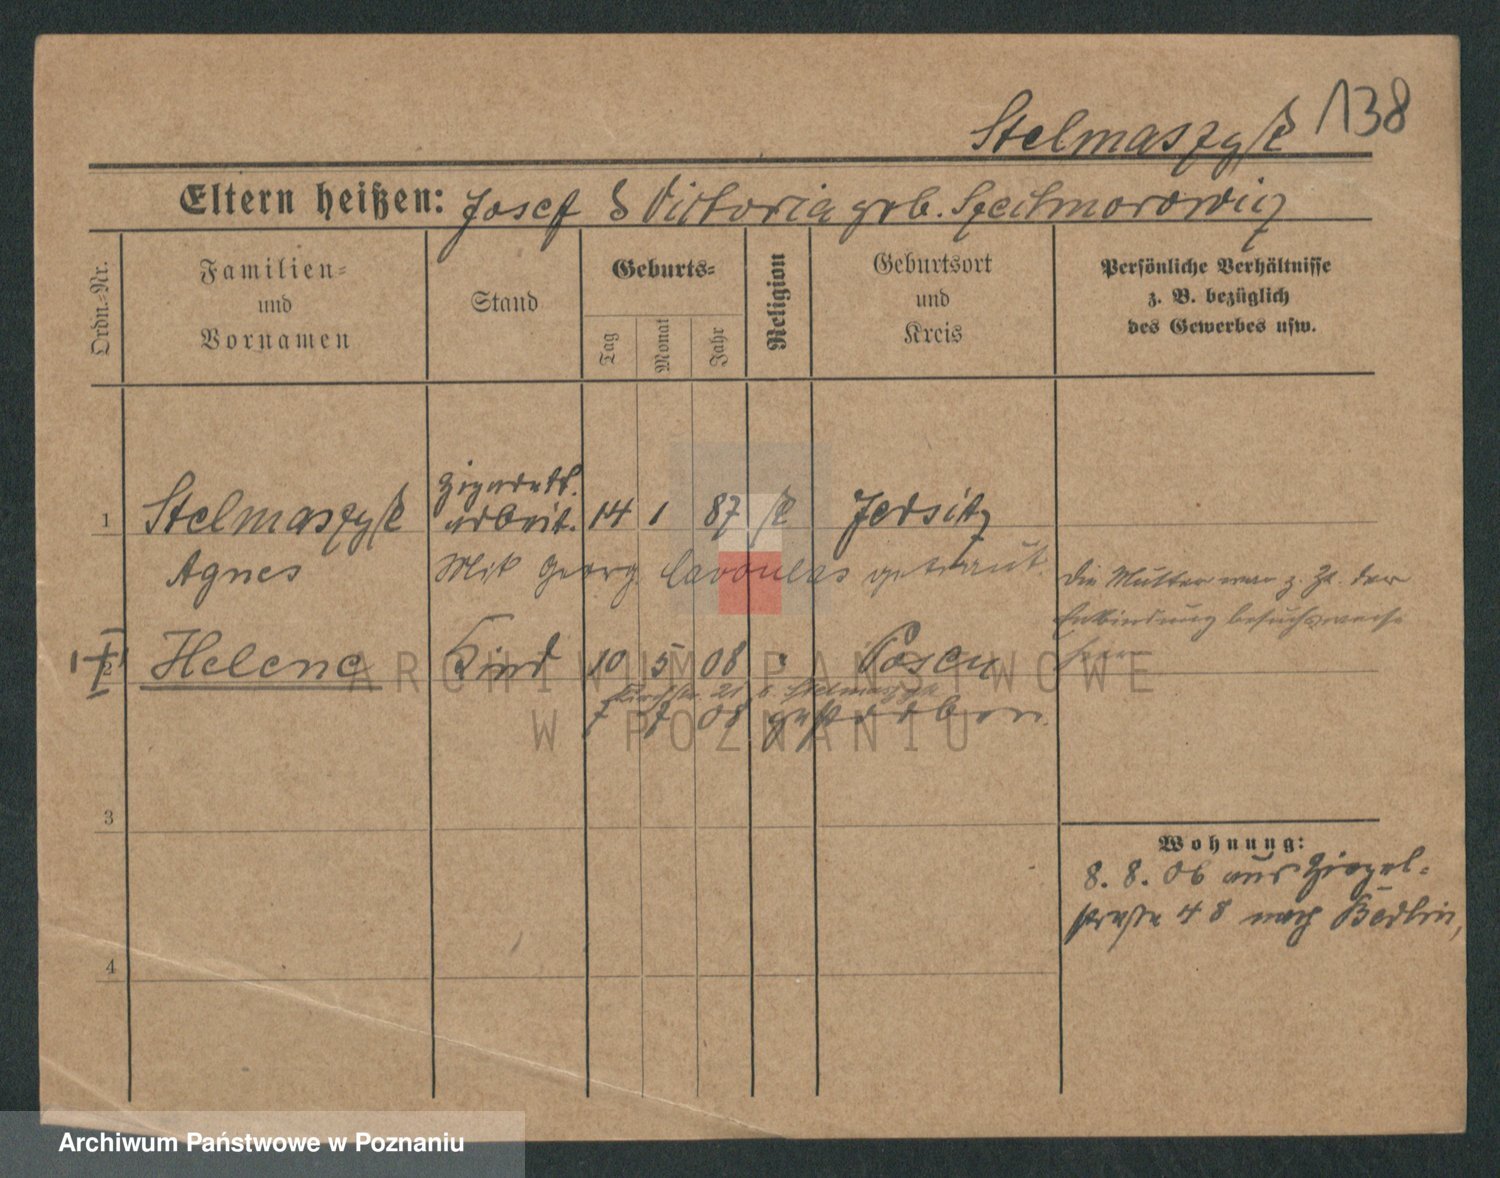 Stelmaszyk 138
Eltern heißen: Josef & Victoria geb.
Ordn.-Nr.
Familien-
und
Vornamen
Stand
Geburts-
Tag
Monat
Jahr
Religion
Geburtsort
und
Kreis
Persönliche Verhältnisse
z. B. bezüglich
des Gewerbes usw.
Zigarett.
1 Stelmaszyk arbeit. 14 1 87 k Jersitz
Agnes Mit Georg getraut.
Die Mutter war z. Zt. der
Entbindung besuchsweise
hier
2 Helene Kind 10 5 08 " Posen
21 b. Stelmaszyk
7 7 08 gestorben.
3
Wohnung:
8. 8. 06 aus Ziegel-
straße 48 nach Berlin,
4
ARCHIWUM PAŃSTWOWE
W POZNANIU
Archiwum Państwowe w Poznaniu